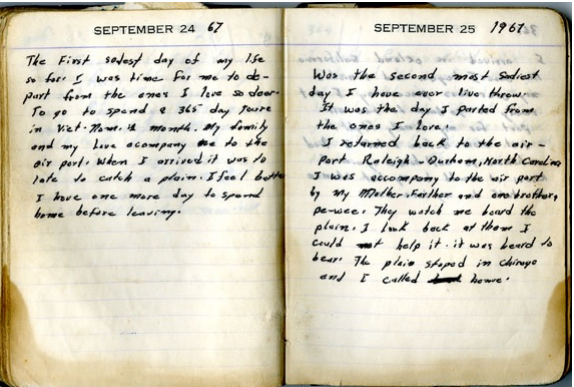 SEPTEMBER 24 67
The First sadest day of my life
so far. I was time for me to de-
part from the ones I love so dear.
To go to spend a 365 day toure
in Viet-Nam. 12 month. My family
and my Love acompany me to the
air port. When I arrived it was to
late to catch a plain. I feel better
I have one more day to spend
home before leaving.
SEPTEMBER 25 1967
Was the second most sadiest
day I have ever live threw.
It was the day I parted from
the ones I Love.
I returned back to the air-
port Raleigh-Durham, North Carolina
I was accompany to the air port
by my Mother-Farther and one brother,
pe-wee. They watch me board the
plain. I look back at them I
could not help it. it was heard to
bear. The plain stoped in chicago
and I called home.